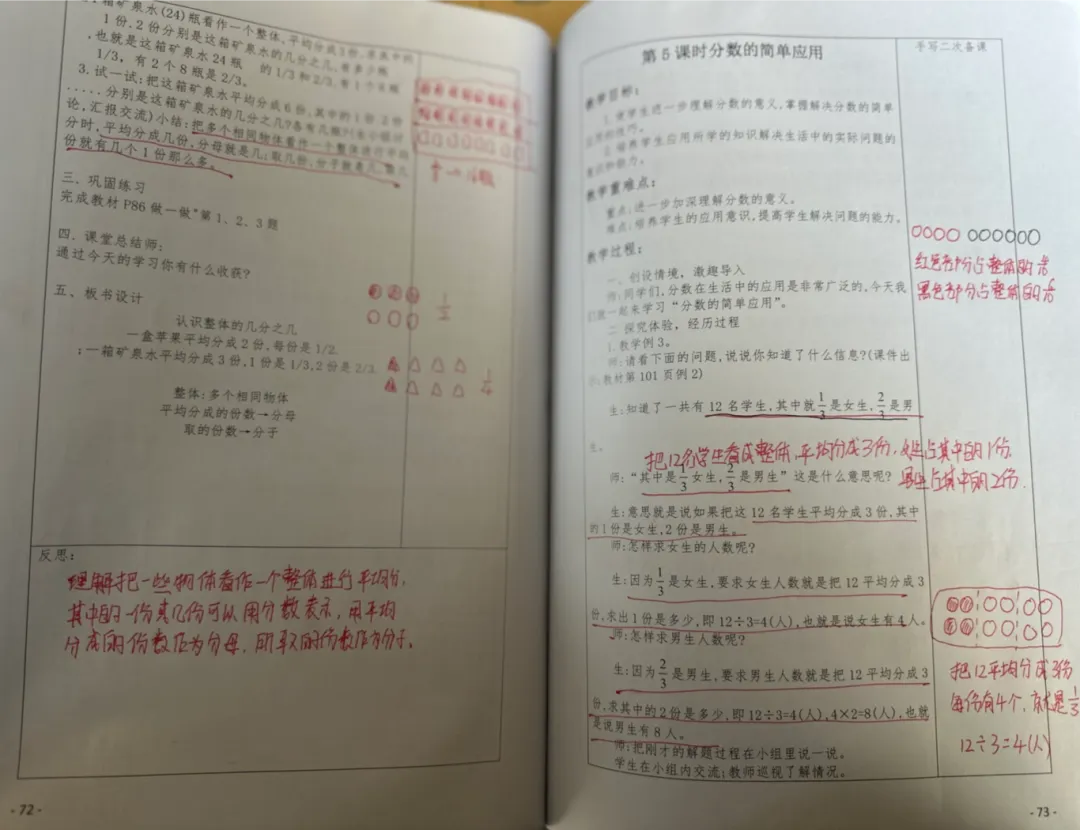 箱矿泉水(24)瓶看作一个整体,平均分成3份,
1份、2份分别是这箱矿泉水的几分之几,有多少瓶
,也就是这箱矿泉水24瓶 的1/3和2/3,有1个8瓶
1/3,有2个8瓶是2/3。
3.试一试:把这箱矿泉水平均分成6份,其中的1份、2份
.....分别是这箱矿泉水的几分之几?各有几瓶?(
论,汇报交流)小结:把多个相同物体看作一个整体进行平均
分时,平均分成几份,分母就是几;取几份,分子就是几,
份就有几个1份那么多。
个一 瓶
三、巩固练习
完成教材P86做一做"第1、2、3题
四、课堂总结师:
通过今天的学习你有什么收获?
五、板书设计
1/2
认识整体的几分之几
一盒苹果平均分成2份,每份是1/2.
:一箱矿泉水平均分成3份,1份是1/3,2份是2/3.
1/4
整体:多个相同物体
平均分成的份数→分母
取的份数→分子
反思:
理解把一些物体看作一个整体进行平均份,
其中的一份或几份可以用分数表示,用平均
分成的份数作为分母,所取的份数作为分子。
-72-
第5课时分数的简单应用
手写二次备课
教学目标:
1.使学生进一步理解分数的意义,掌握解决分数的简单
应用的技巧。
2.培养学生应用所学的知识解决生活中的实际问题的
意识和能力。
教学重难点:
重点:进一步加深理解分数的意义。
难点:培养学生的应用意识,提高学生解决问题的能力。
教学过程:
红色部分占整体的
黑色部分占整体的
一、创设情境,激趣导入
师:同学们,分数在生活中的应用是非常广泛的,今天我
们就一起来学习“分数的简单应用”。
二、探究体验,经历过程
1.教学例3。
师:请看下面的问题,说说你知道了什么信息?(课件出
示:教材第101页例2)
生:知道了一共有12名学生,其中就1/3是女生,2/3是男
生。
把12名学生看成整体,平均分成3份,女生占其中的1份,
男生占其中的2份.
师:“其中是1/3女生,2/3是男生”这是什么意思呢?
生:意思就是说如果把这12名学生平均分成3份,其中
的1份是女生,2份是男生。
师:怎样求女生的人数呢?
生:因为1/3是女生,要求女生人数就是把12平均分成3
份,求出1份是多少,即12÷3=4(人),也就是说女生有4人。
师:怎样求男生人数呢?
生:因为2/3是男生,要求男生人数就是把12平均分成3
份,求其中的2份是多少,即12÷3=4(人),4×2=8(人),也就
是说男生有8人。
师:把刚才的解题过程在小组里说一说。
学生在小组内交流;教师巡视了解情况。
把12平均分成3份
每份有4个,就是1/3
12÷3=4(人)
-73-